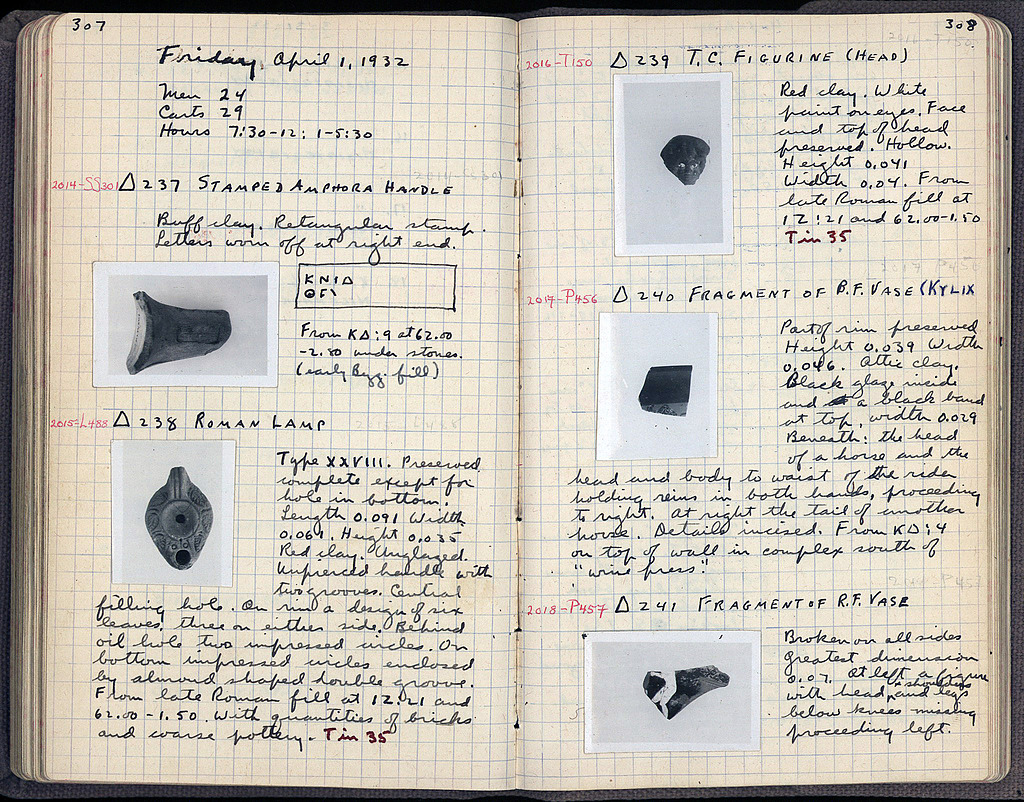 307
Friday, April 1, 1932
Men 24
Carts 29
Hours 7:30-12; 1-5:30
2014-SS301 Δ 237 STAMPED AMPHORA HANDLE
Buff clay. Retangular stamp.
Letters worn off at right end.
ΚΝΙΔ
From ΚΔ:9 at 62.00
-2.80 under stones.
(early Byz. fill)
2015-L488 Δ 238 ROMAN LAMP
Type XXVIII. Preserved
complete except for
hole in bottom.
Length 0.091 Width
0.061. Height 0.035
Red clay. Unglazed.
Unpierced handle with
two grooves. Central
filling hole. On rim a design of six
leaves, three on either side. Behind
oil hole two impressed circles. On
bottom impressed circles enclosed
by almond shaped double groove.
From late Roman fill at 12:21 and
62.00-1.50. With quantities of bricks
and coarse pottery. - Tin 35
308
2016-T150 Δ 239 T.C. FIGURINE (HEAD)
Red clay. White
paint on eyes. Face
and top of head
preserved. Hollow.
Height 0.041
Width 0.04. From
late Roman fill at
12:21 and 62.00-1.50
Tin 35
2017-P456 Δ 240 FRAGMENT OF B.F. VASE (KYLIX
Part of rim preserved
Height 0.039 Width
0.046. Attic clay.
Black glaze inside
and a black band
at top, width 0.029
Beneath: the head
of a horse and the
head and body to waist of the rider
holding reins in both hands, proceeding
to right. At right the tail of another
horse. Details incised. From ΚΔ:4
on top of wall in complex south of
"wine press."
2018-P457 Δ 241 FRAGMENT OF R.F. VASE
Broken on all sides
greatest dimension
0.07. At left a figure
with head, and shoulders legs
below knees missing
proceeding left.